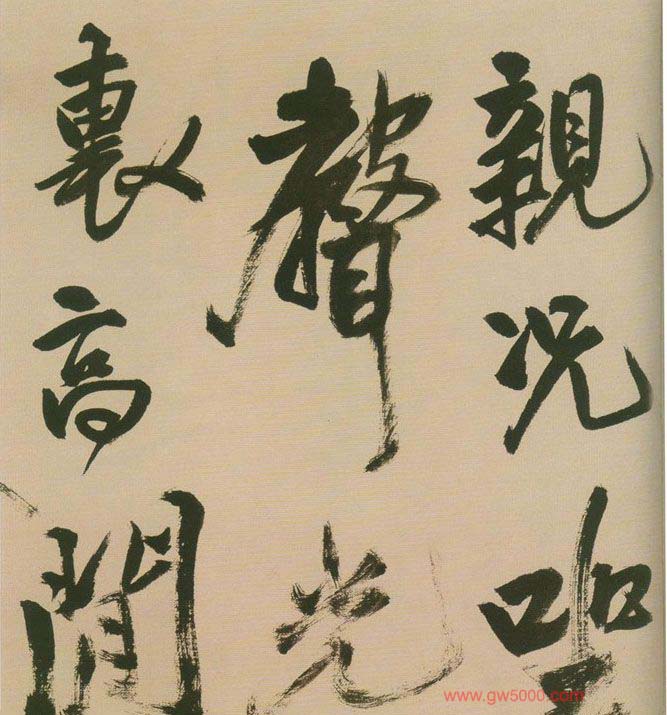 親況坐
聲光
裏高
www.gw5000.com